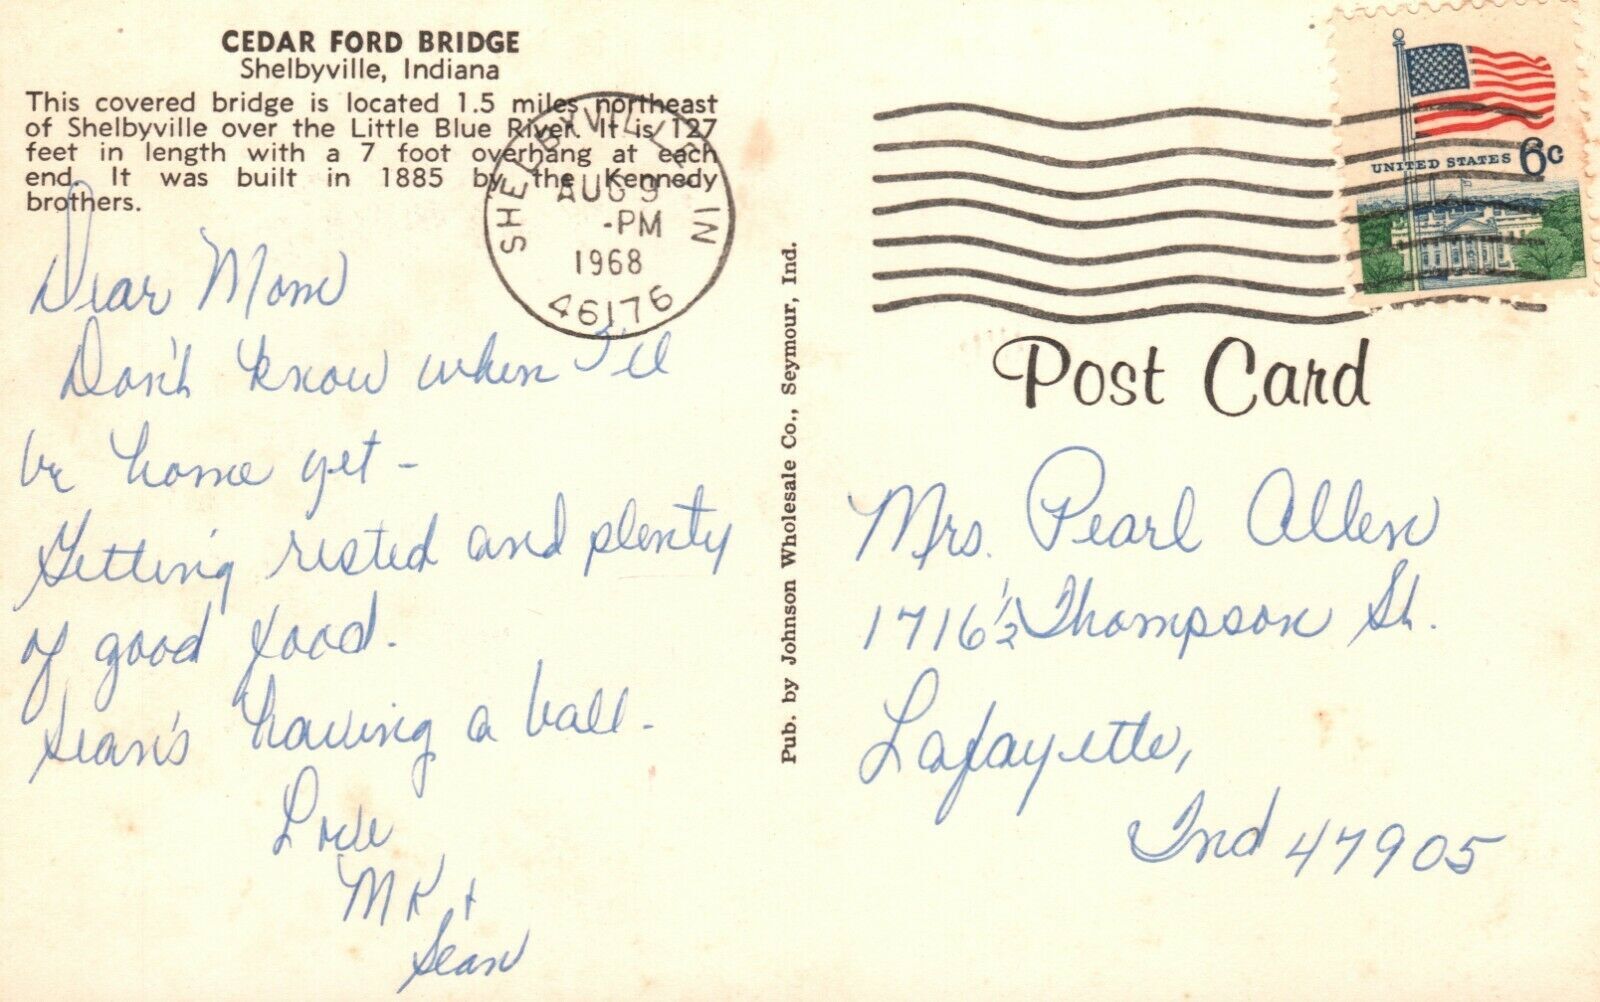 CEDAR FORD BRIDGE
Shelbyville, Indiana
This covered bridge is located 1.5 miles northeast
of Shelbyville over the Little Blue River. It is 127
feet in length with a 7 foot overhang at each
end. It was built in 1885 by the Kennedy
brothers.
SHELBYVILLE, IN
AUG 9
-PM
1968
46176
UNITED STATES 6c
Dear Mom
Don't know when I'll
be home yet -
Getting rested and plenty
of good food.
Sean's having a ball -
Love
MK +
Sean
Pub. by Johnson Wholesale Co., Seymour, Ind.
Post Card
Mrs. Pearl Allen
1716½ Thompson St.
Lafayette,
Ind 47905